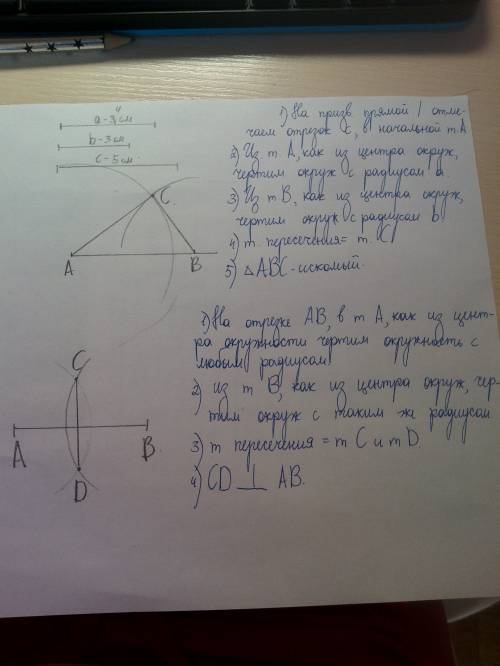 a - 4 см
b - 3 см
c - 5 см.
C
A
B
1) На произв. прямой l отме-
чаем отрезок C, в начальной т A
2) Из т. A, как из центра окруж,
чертим окруж с радиусом a.
3) Из т B, как из центра окруж,
чертим окруж с радиусом b
4) т. пересечения = т. C
5) △ABC - искомый.
1) На отрезке AB, в т A, как из цент-
ра окружности чертим окружность с
любым радиусом
2) из т B, как из центра окруж, чер-
тим окруж с таким же радиусом.
3) т пересечения = т C и т D
4) CD ⊥ AB.
C
A
B
D